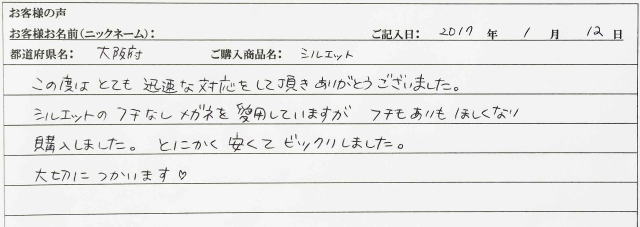 お客様の声
お客様お名前（ニックネーム）： ご記入日： 2017 年 1 月 12 日
都道府県名： 大阪府 ご購入商品名： シルエット
この度は とても 迅速な対応をして頂き ありがとうございました。
シルエットの フチなし メガネを 愛用していますが フチもありも ほしくなり
購入しました。 とにかく 安くて ビックリしました。
大切に つかいます♡